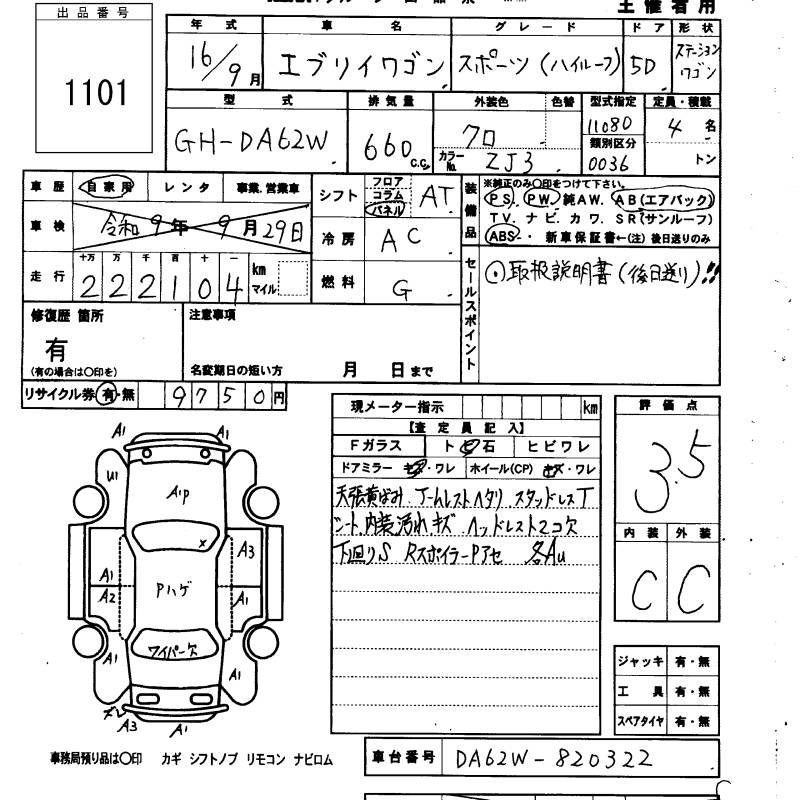 主催者用
出品番号
1101
年式 車名 グレード ドア 形状
16/9月 エブリイワゴン スポーツ(ハイルーフ) 5D ステーションワゴン
型式 排気量 外装色 色替 型式指定 定員・積載
GH-DA62W 660c.c. クロ 11080 4名
カラーNo. ZJ3 類別区分 0036 トン
車歴 自家用 レンタ 事業.営業車
シフト フロア コラム パネル AT
装備品 ※純正のみ〇印をつけて下さい。
PS. PW. 純AW. AB(エアバック)
TV. ナビ. カワ. SR(サンルーフ)
ABS・ 新車保証書←(注)後日送りのみ
車検 令和9年9月29日
冷房 AC
走行 十万 万 千 百 十 一
222104 km マイル
燃料 G
セールスポイント ⊙取扱説明書(後日送り)!!
修復歴 箇所
有
(有の場合は〇印を)
注意事項
名変期日の短い方 月 日まで
リサイクル券 有・無 9750円
現メーター指示 km
【査定員記入】
Fガラス ト ビ 石 ヒビワレ
ドアミラー キズ・ワレ ホイール(CP) キズ・ワレ
天張黄ばみ.アームレストヘタリ.スタッドレスT
シート.内装汚れ.キズ ヘッドレスト2コ欠
下廻りS RスポイラーPアセ 各AU
評価点
3.5
内装 外装
C C
ジャッキ 有・無
工具 有・無
スペアタイヤ 有・無
A1 A1
U1 A1P
X A3
A1 Pハゲ
A2 A1
ワイパー欠
A1 A1
ズレ A3 A1
事務局預り品は〇印 カギ シフトノブ リモコン ナビロム
車台番号 DA62W-820322